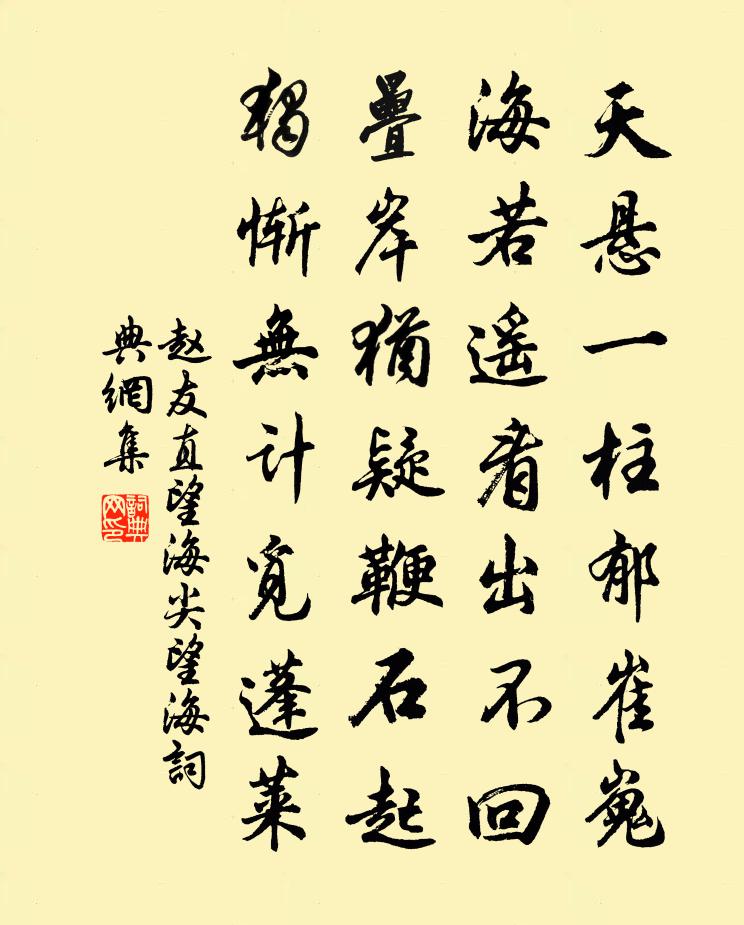 天悬一柱郁崔嵬
海若遥看出不回
疊岸猶疑鞭石起
獨惭無计覓蓬莱
赵友直望海尖望海詞
典網集
詞典网印